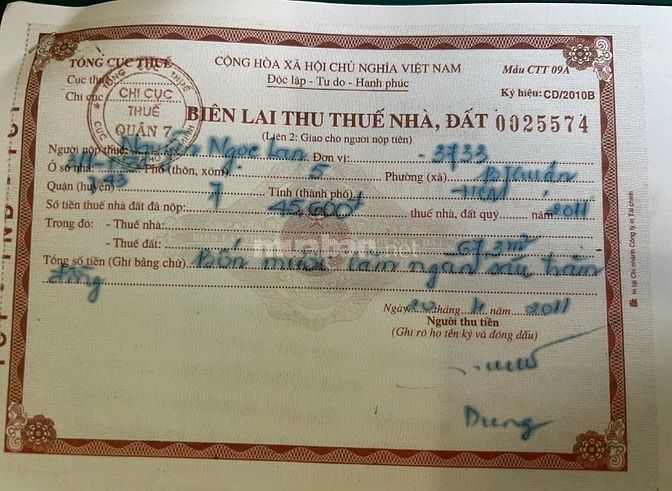 TỔNG CỤC THUẾ
CỘNG HÒA XÃ HỘI CHỦ NGHĨA VIỆT NAM
Mẫu CTT 09A
Cục thuế
Độc lập - Tự do - Hạnh phúc
Chi cục
Ký hiệu: CD/2010B
TỔNG CỤC THUẾ
CHI CỤC
THUẾ
QUẬN 7
BIÊN LAI THU THUẾ NHÀ, ĐẤT 0025574
(Liên 2: Giao cho người nộp tiền)
Người nộp thuế: Ngọc Lan Đơn vị: 3733
Ở số nhà: Phố (thôn, xóm) 5 Phường (xã)
Quận (huyện) 7 Tỉnh (thành phố)
Số tiền thuế nhà đất đã nộp: 45.600đ thuế nhà, đất quý năm 2011
Trong đó: - Thuế nhà:
muaban.net
- Thuế đất: 67,3m²
Tổng số tiền (Ghi bằng chữ) Bốn mươi lăm ngàn sáu trăm
đồng
Ngày 20 tháng 4 năm 2011
Người thu tiền
(Ghi rõ họ tên ký và đóng dấu)
Dung
In tại Chi nhánh Công ty in Tài chính